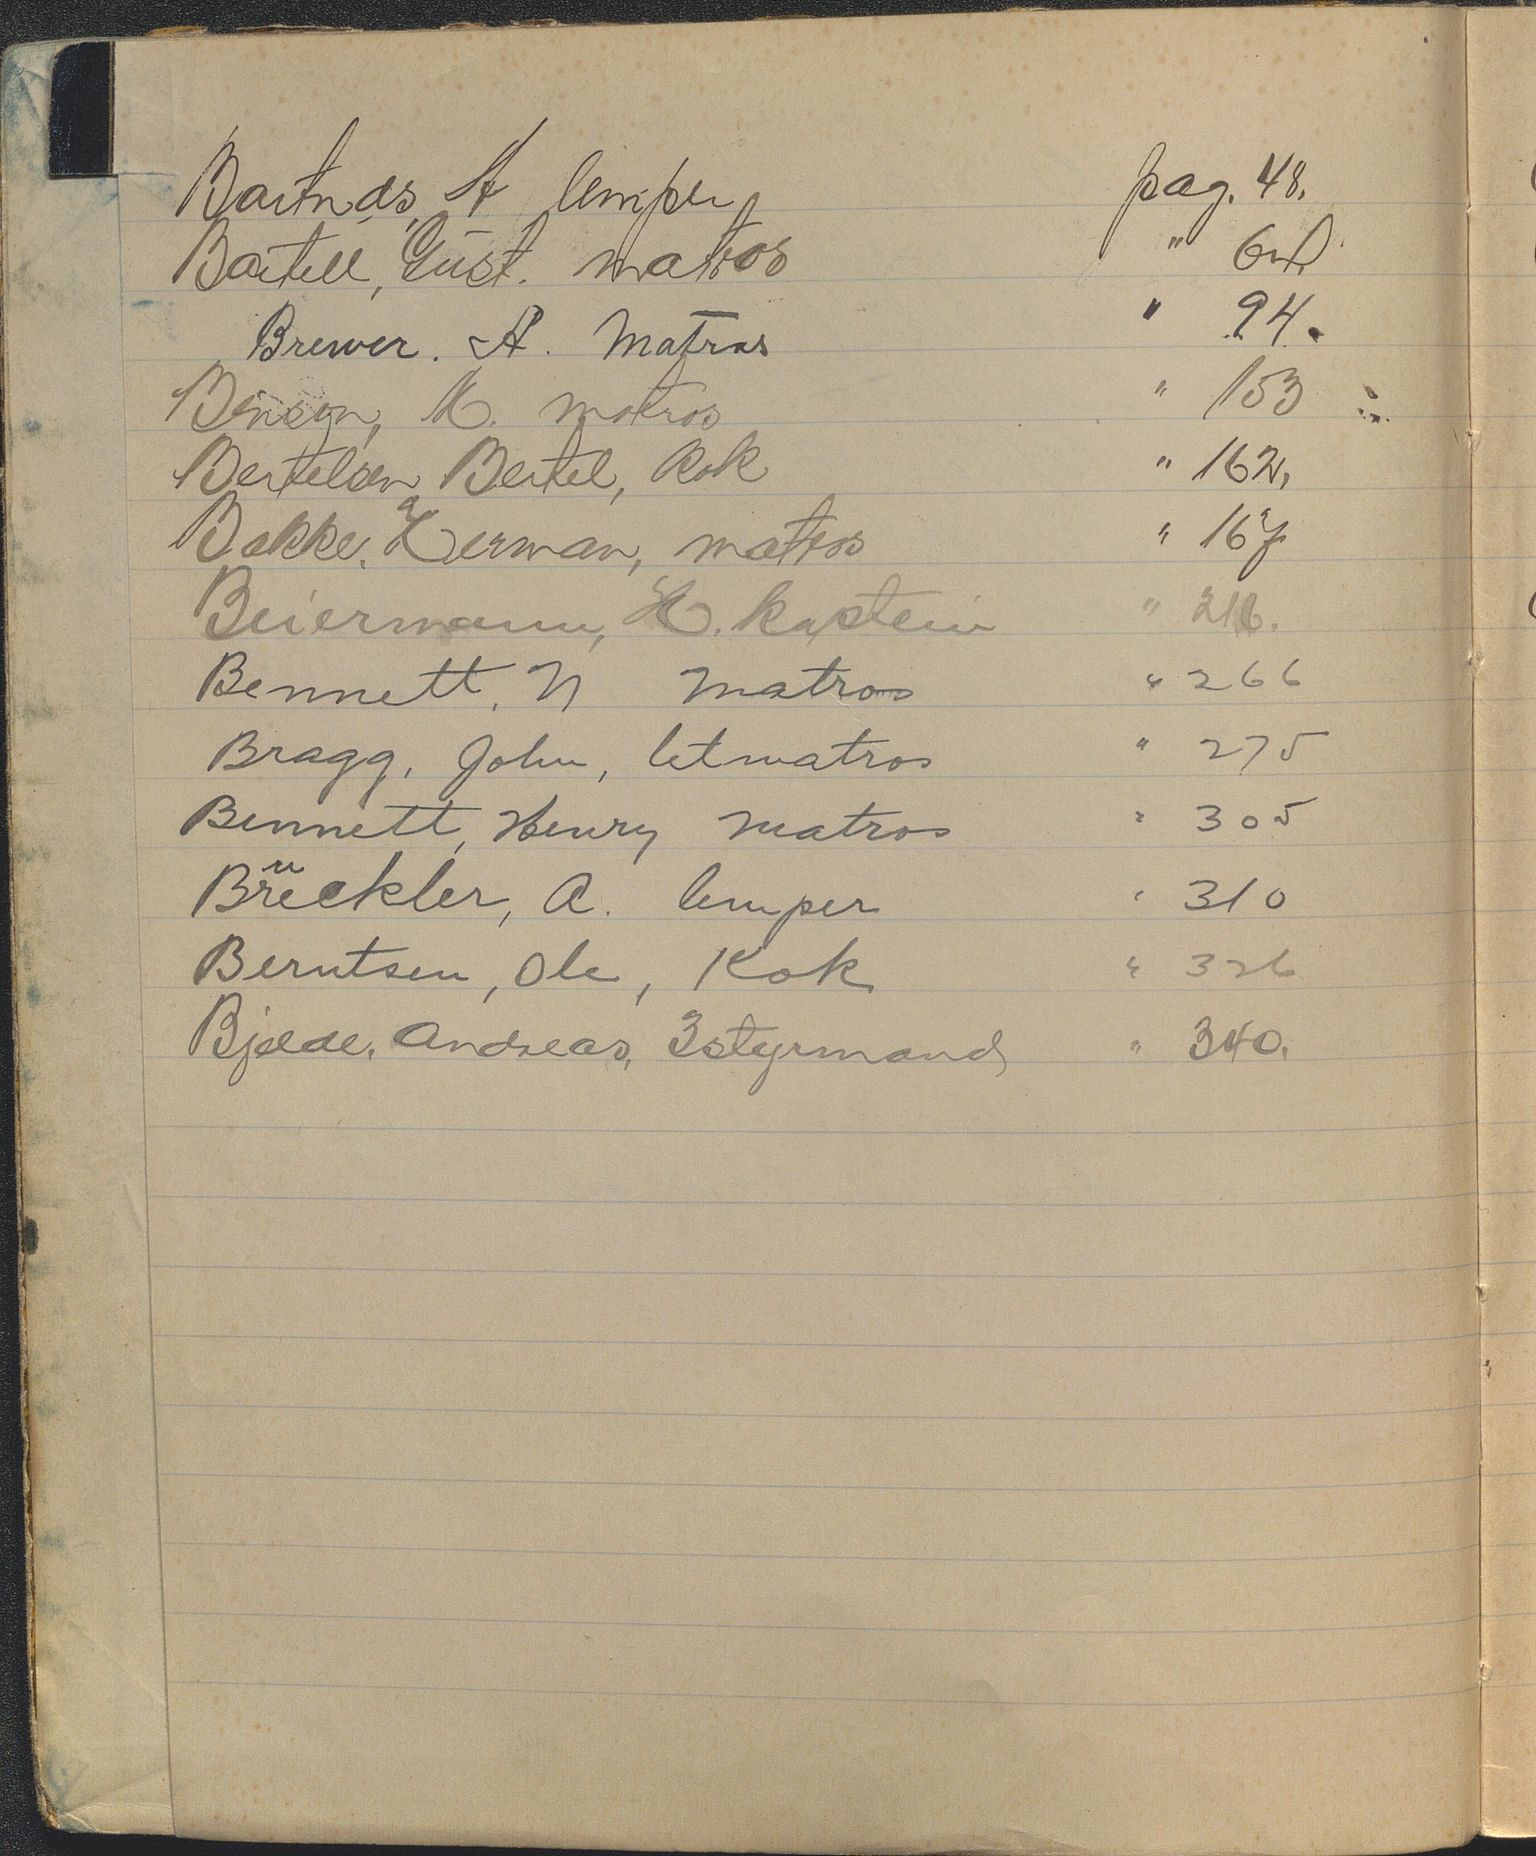 A lemper pag. 48.
Bartell, Gust. matros "
Brewer. A. Matros " 94.
Bensen, matros " 153
Bertelsen Bertel, Kok " 162,
Bakke, Herman, matros " 167
Beiermann, H. Kaptein " 216.
Bennett, N Matros " 266
Bragg, John, letmatros " 275
Bennett, Henry matros " 305
Brückler, A. lemper " 310
Berntsen, Ole, Kok " 326
Andreas, 3styrmand " 340.